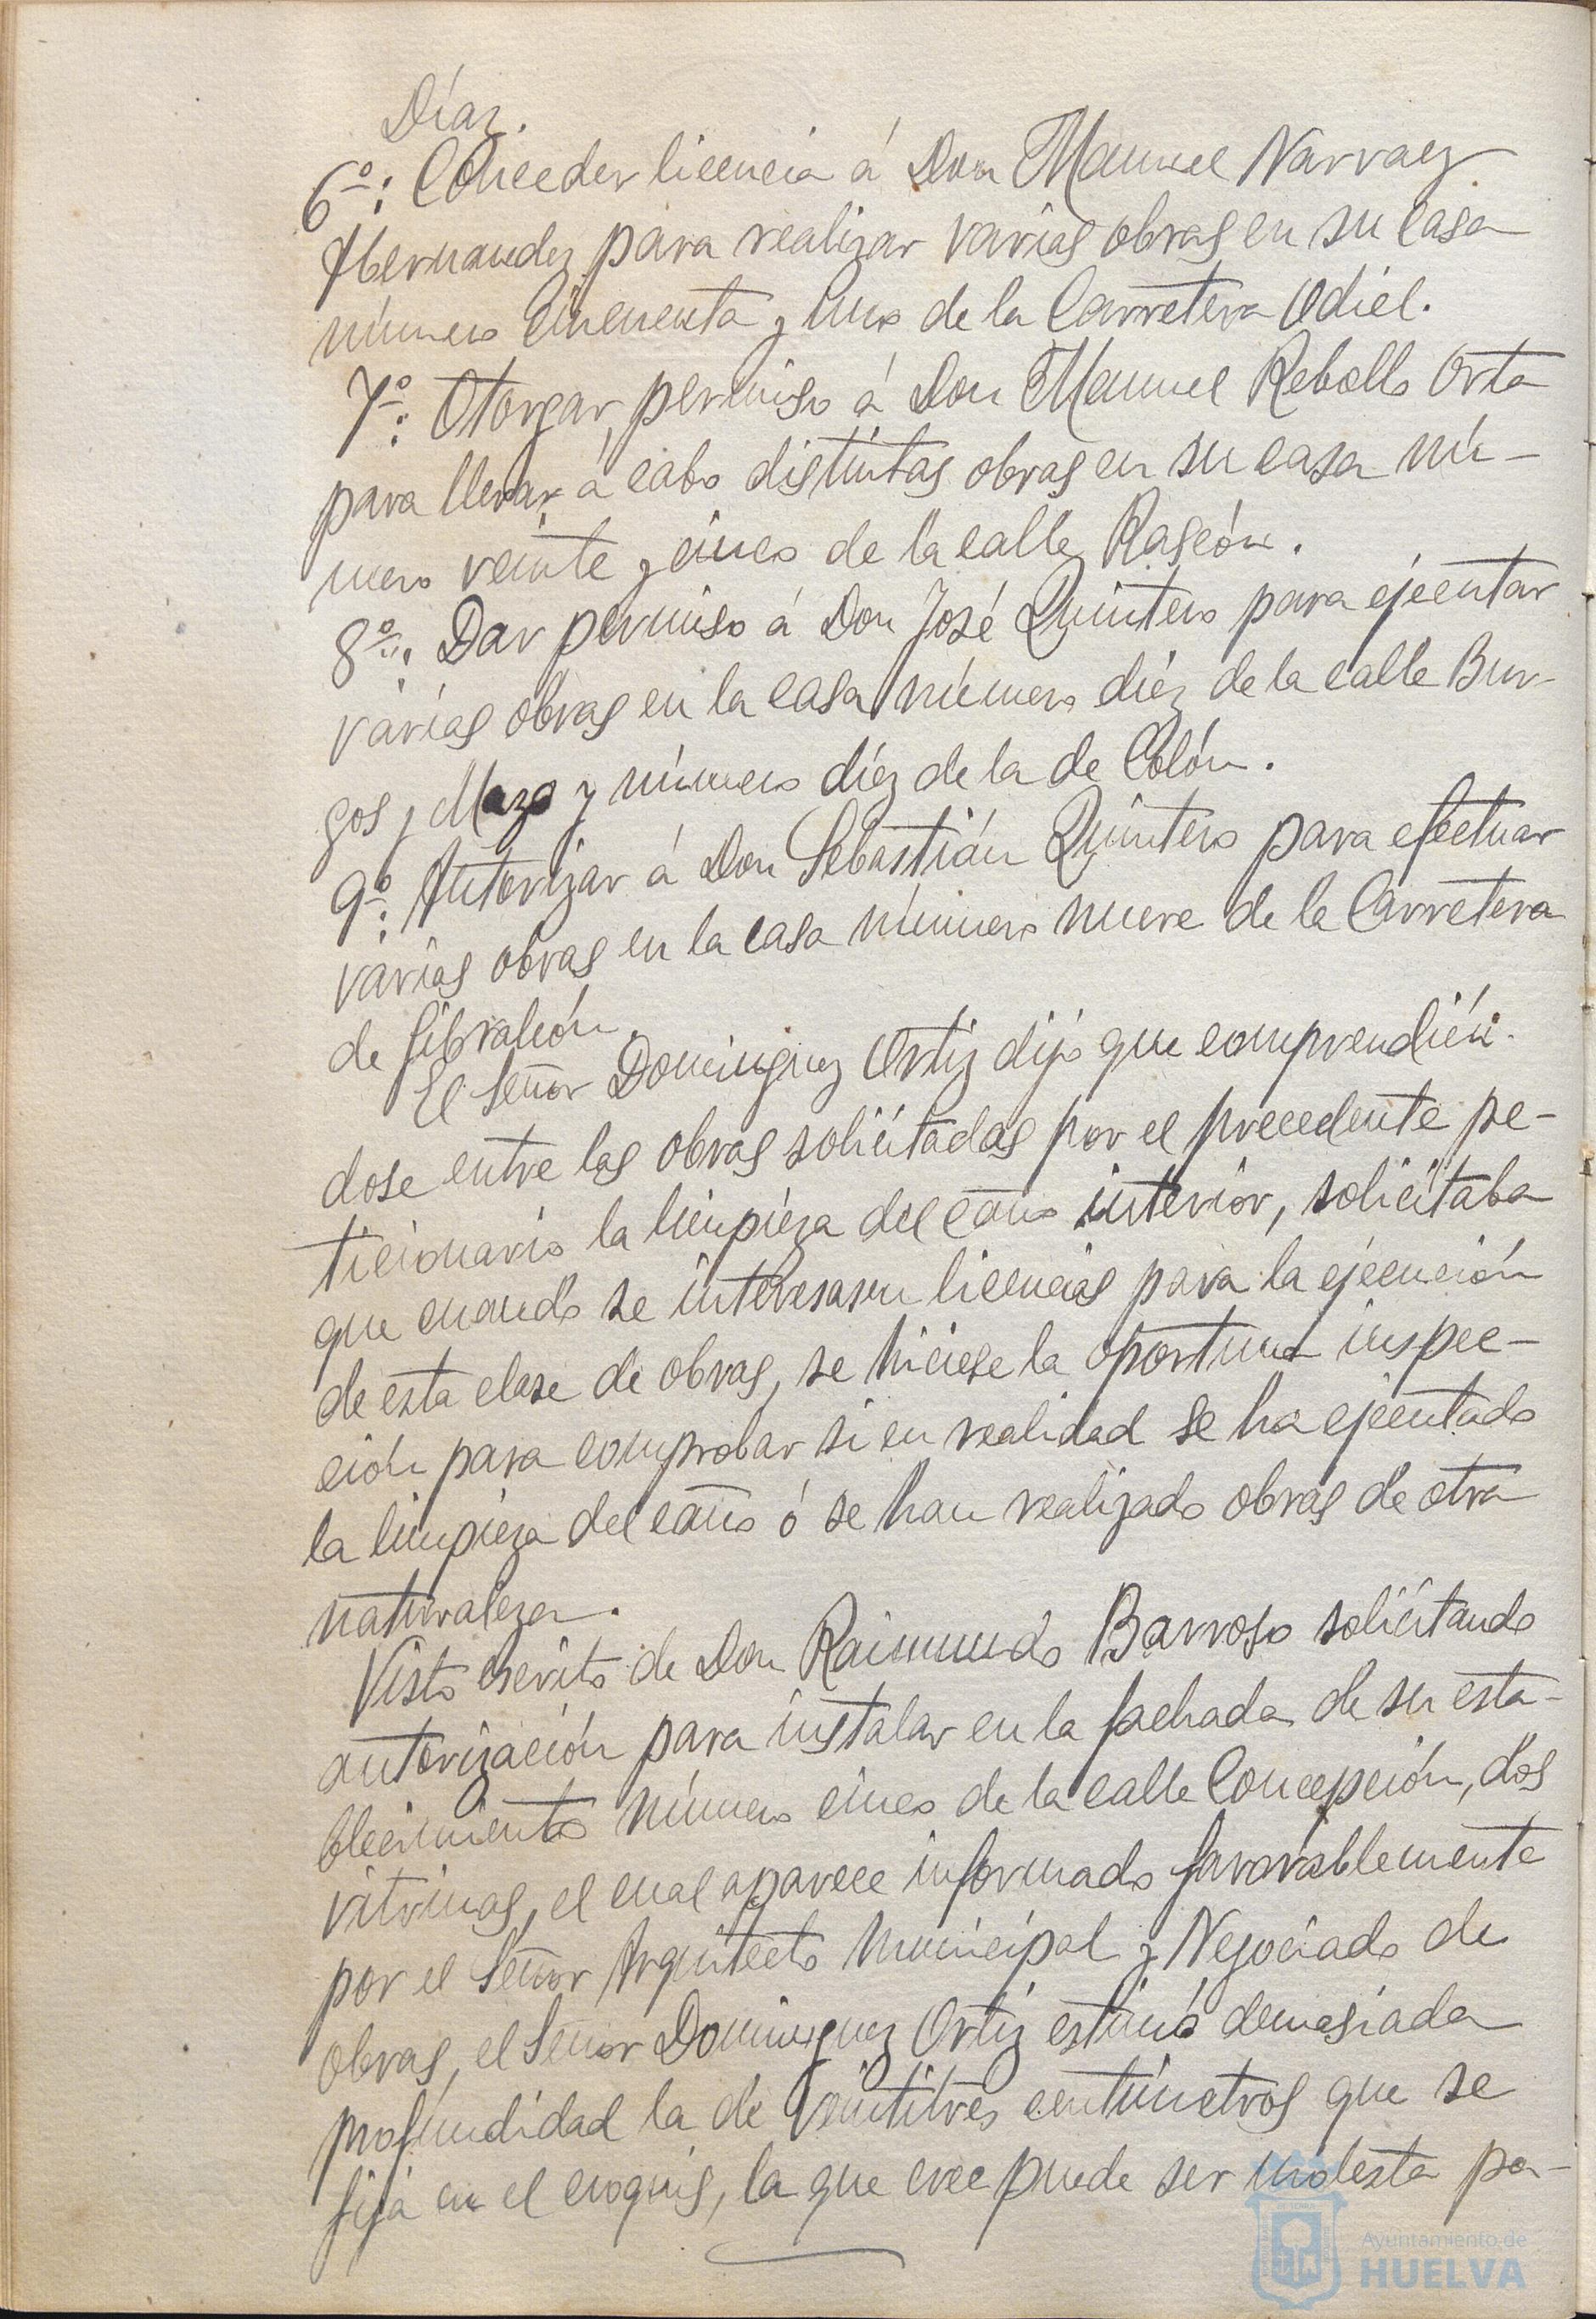 Díaz.
6º: Conceder licencia á Don Manuel Narvaez
Hernandez para realizar varias obras en su casa
número cincuenta y uno de la Carretera Odiel.
7º: Otorgar permiso á Don Manuel Rebollo Orta
para llevar á cabo distintas obras en su casa nú-
mero veinte y cinco de la calle Rascón.
8º: Dar permiso á Don José Quintero para ejecutar
varias obras en la casa número diez de la calle Bur-
gos y Mazo y número diez de la de Colón.
9º: Autorizar á Don Sebastián Quintero para efectuar
varias obras en la casa número nueve de la Carretera
de Gibraleón.
El Señor Dominguez Ortiz dijo que comprendién-
dose entre las obras solicitadas por el precedente pe-
ticionario la limpieza del caño interior, solicitaba
que cuando se interesasen licencias para la ejecución
de esta clase de obras, se hiciese la oportuna inspec-
ción para comprobar si en realidad se ha ejecutado
la limpieza del caño ó se han realizado obras de otra
naturaleza.
Visto escrito de Don Raimundo Barroso solicitando
autorización para instalar en la fachada de su esta-
blecimiento número cinco de la calle Concepción, dos
vitrinas, el cual aparece informado favorablemente
por el Señor Arquitecto Municipal y Negociado de
obras, el Señor Dominguez Ortiz estimó demasiada
profundidad la de veintitres centímetros que se
fija en el croquis, la que cree puede ser molesta pa-
Ayuntamiento de
HUELVA